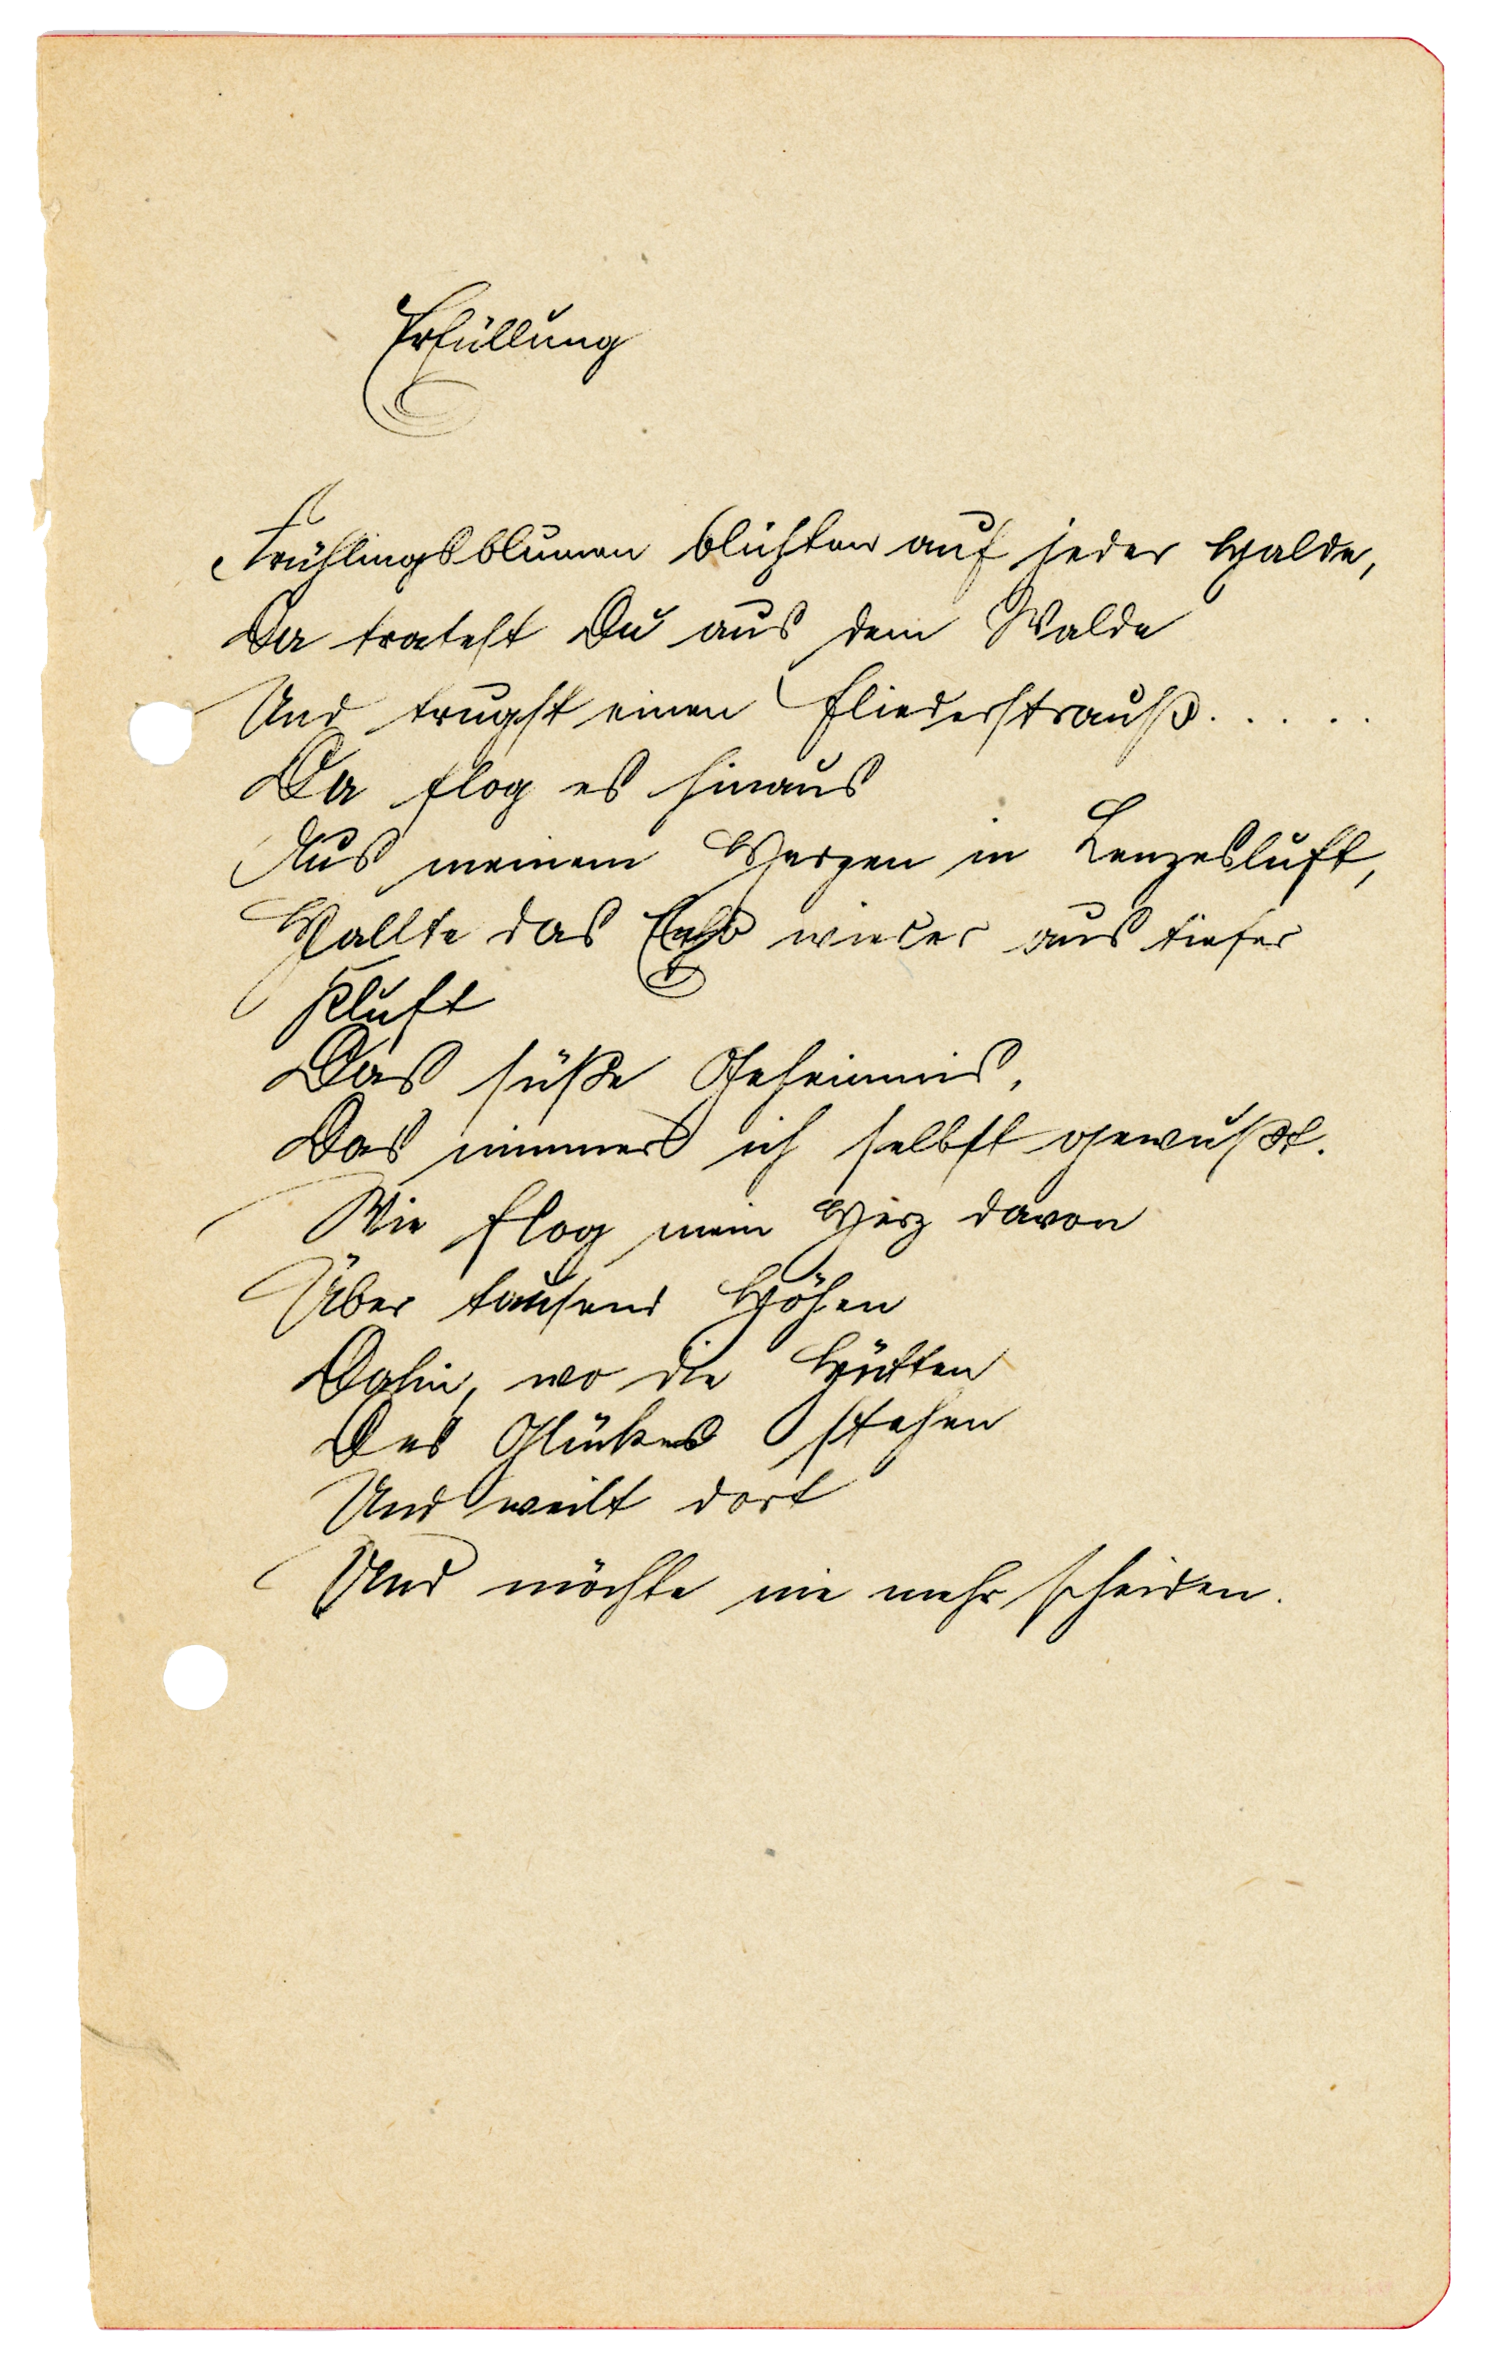 Erfüllung
Frühlingsblumen blühten auf jeder Halde,
Da tratest Du aus dem Walde
Und trugst einen Fliederstrauß.....
Da flog es hinaus
Aus meinem Herzen in Lenzesluft,
Hallte das Echo wieder aus tiefer
Kluft
Das süße Geheimnis,
Das nimmer ich selbst gewußt.
Wie flog mein Herz davon
Über tausend Höhen
Dahin, wo die Hütten
Des Glückes stehen
Und weilt dort
Und möchte nie mehr scheiden.